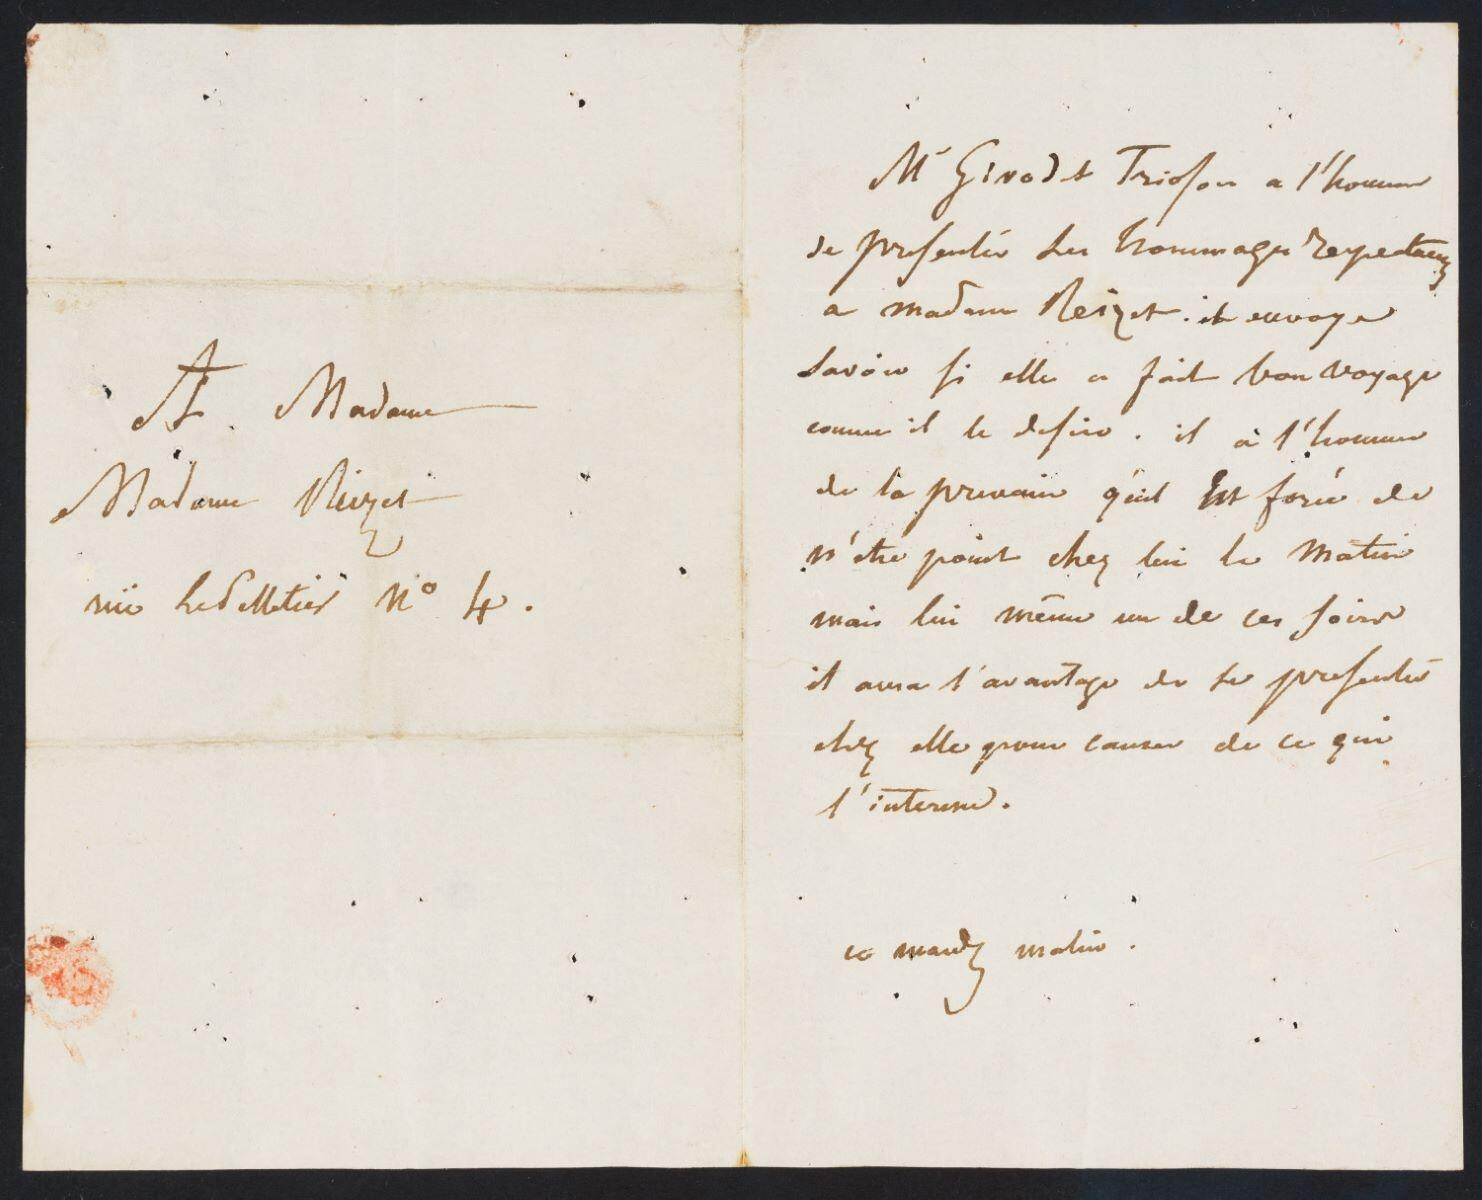 A Madame
Madame Reizet
rüe Lepelletier N° 4.
Mr Girodet Trioson a l'honneur
de presenter ses hommages respectueux
a madame Reizet. il envoye
savoir si elle a fait bon voyage
comme il le desire. il a l'honneur
de la prevenir qu'il Est forcé de
n'etre point chez lui le matin
mais lui même un de ces soirs
il aura l'avantage de se presenter
chez elle pour causer de ce qui
l'interesse.
ce mardy matin.